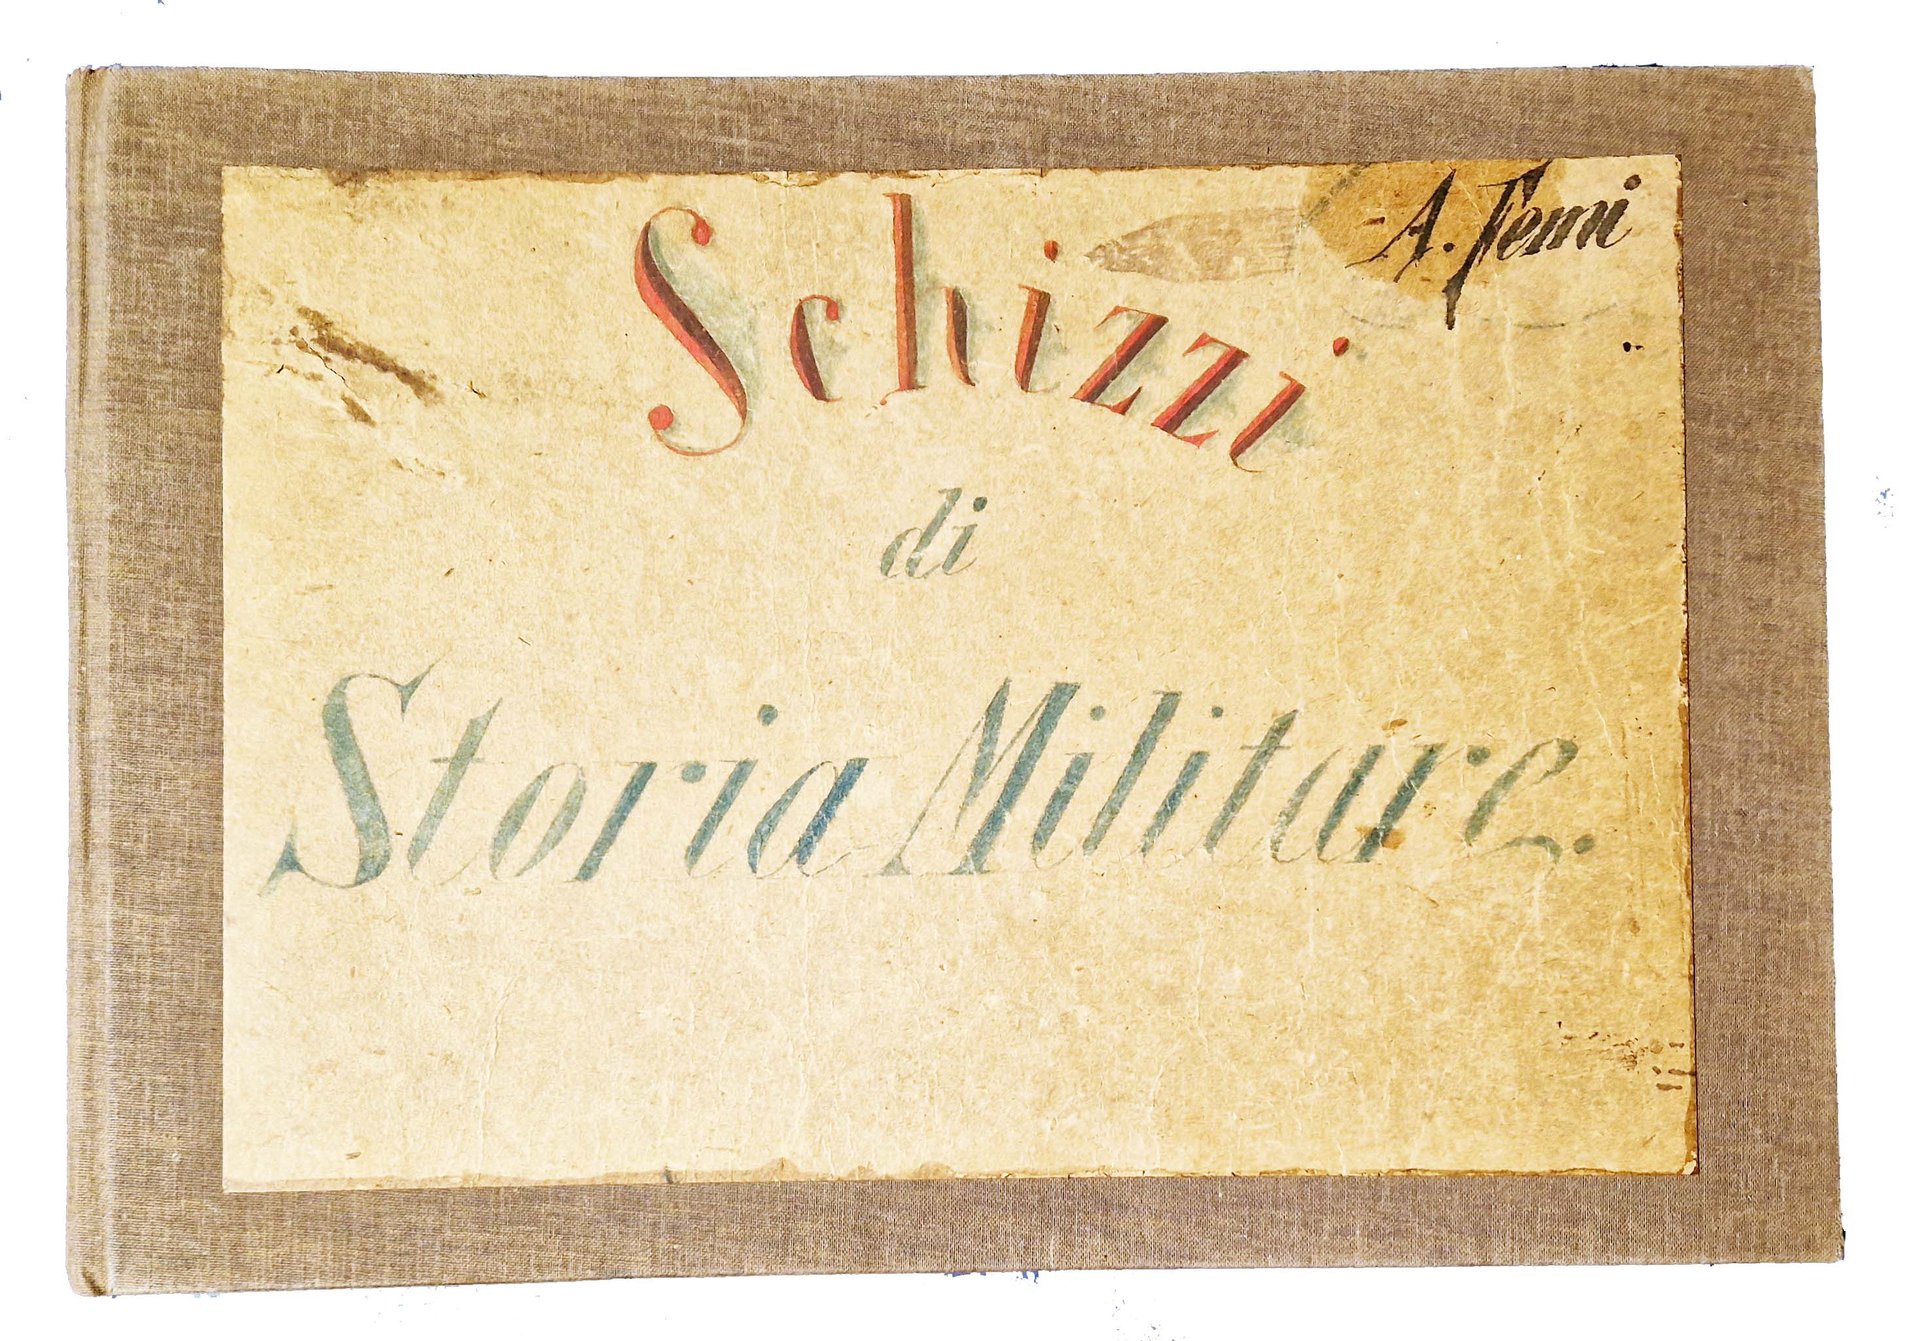 A. Temi
Schizzi
di
Storia Militare.